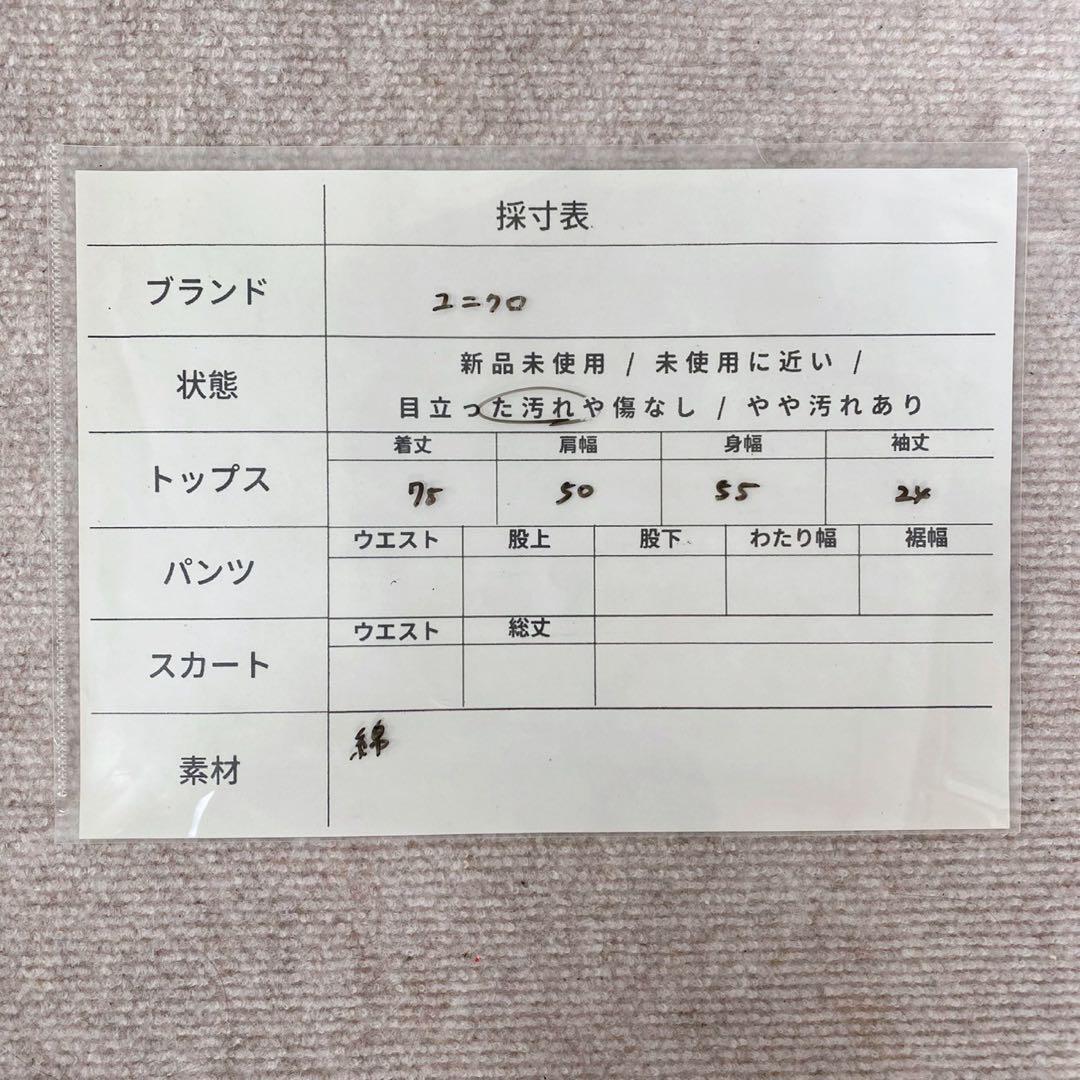 採寸表
ブランド
ユニクロ
状態
新品未使用 / 未使用に近い /
目立った汚れや傷なし / やや汚れあり
トップス
着丈 肩幅 身幅 袖丈
75 50 55 24
パンツ
ウエスト 股上 股下 わたり幅 裾幅
スカート
ウエスト 総丈
素材
綿